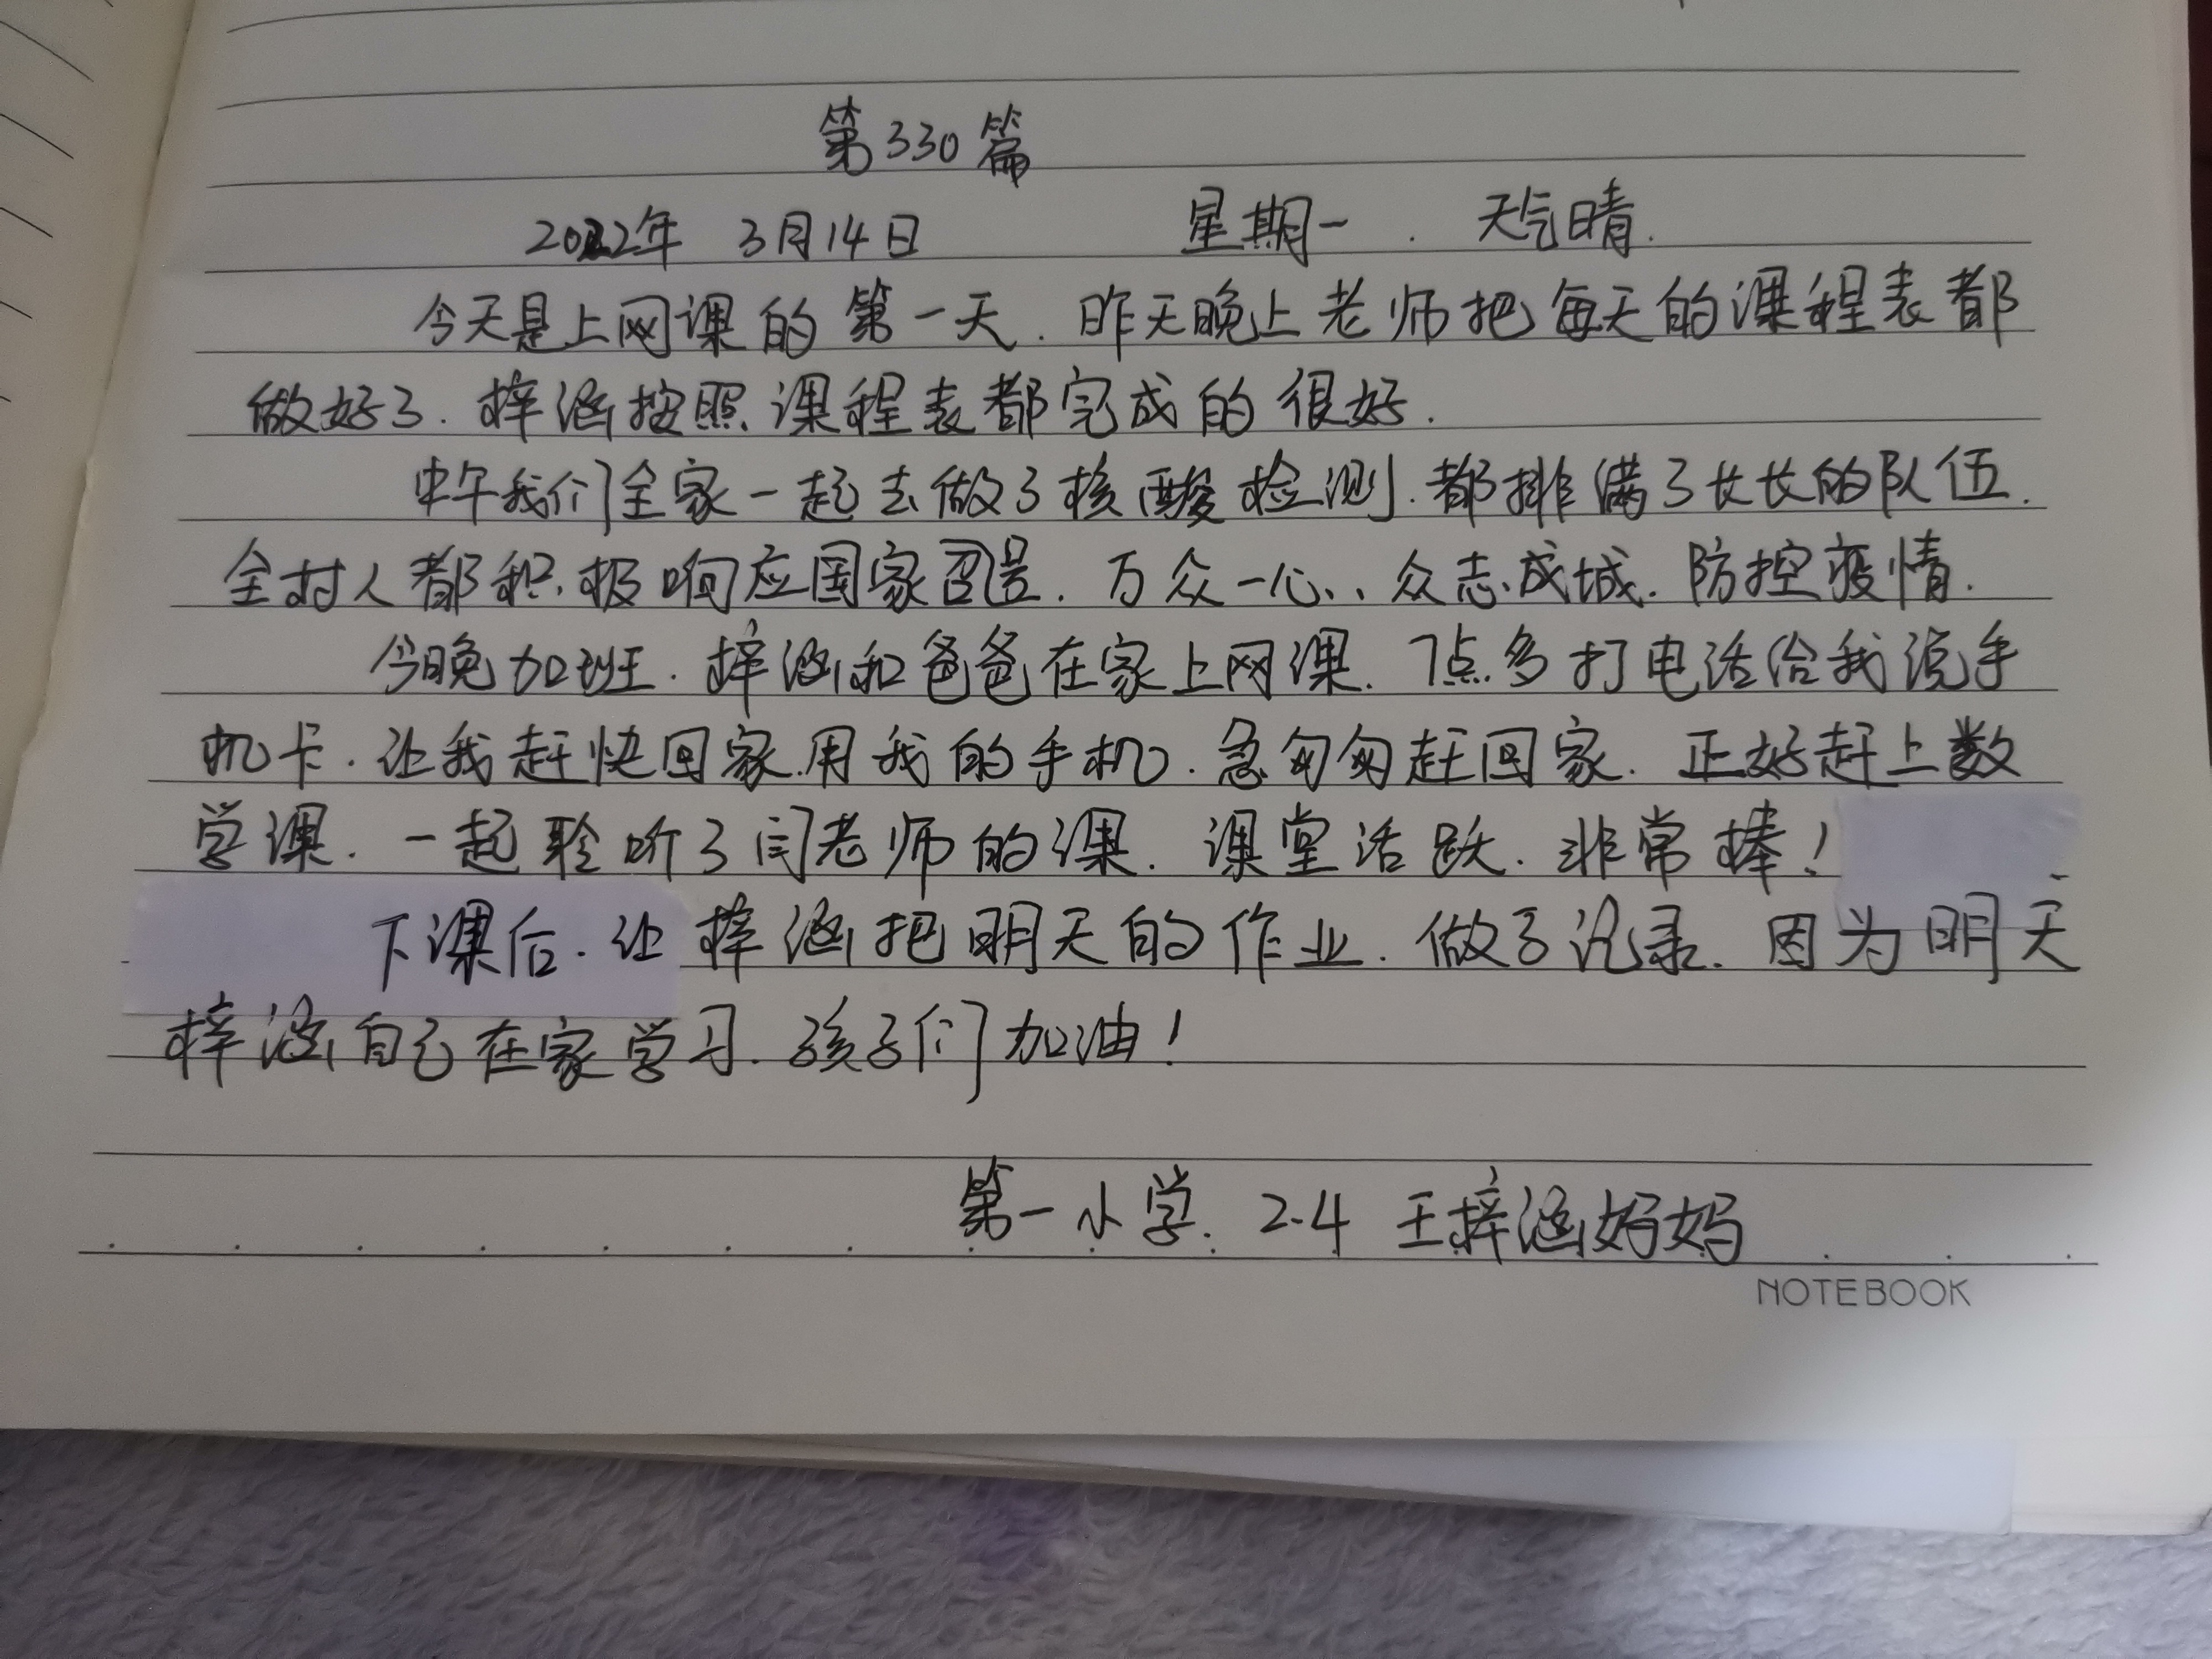 第330篇
2022年 3月14日 星期一. 天气晴.
今天是上网课的第一天.昨天晚上老师把每天的课程表都
做好了.梓涵按照课程表都完成的很好.
中午我们全家一起去做了核酸检测.都排满了长长的队伍.
全村人都积极响应国家召号.万众一心、众志成城.防控疫情.
今晚加班.梓涵和爸爸在家上网课.7点多打电话给我说手
机卡.让我赶快回家用我的手机.急匆匆赶回家.正好赶上数
学课.一起聆听了闫老师的课.课堂活跃.非常棒!
下课后.让梓涵把明天的作业.做了记录.因为明天
梓涵自己在家学习.孩子们加油!
第一小学.2.4 王梓涵妈妈
NOTEBOOK